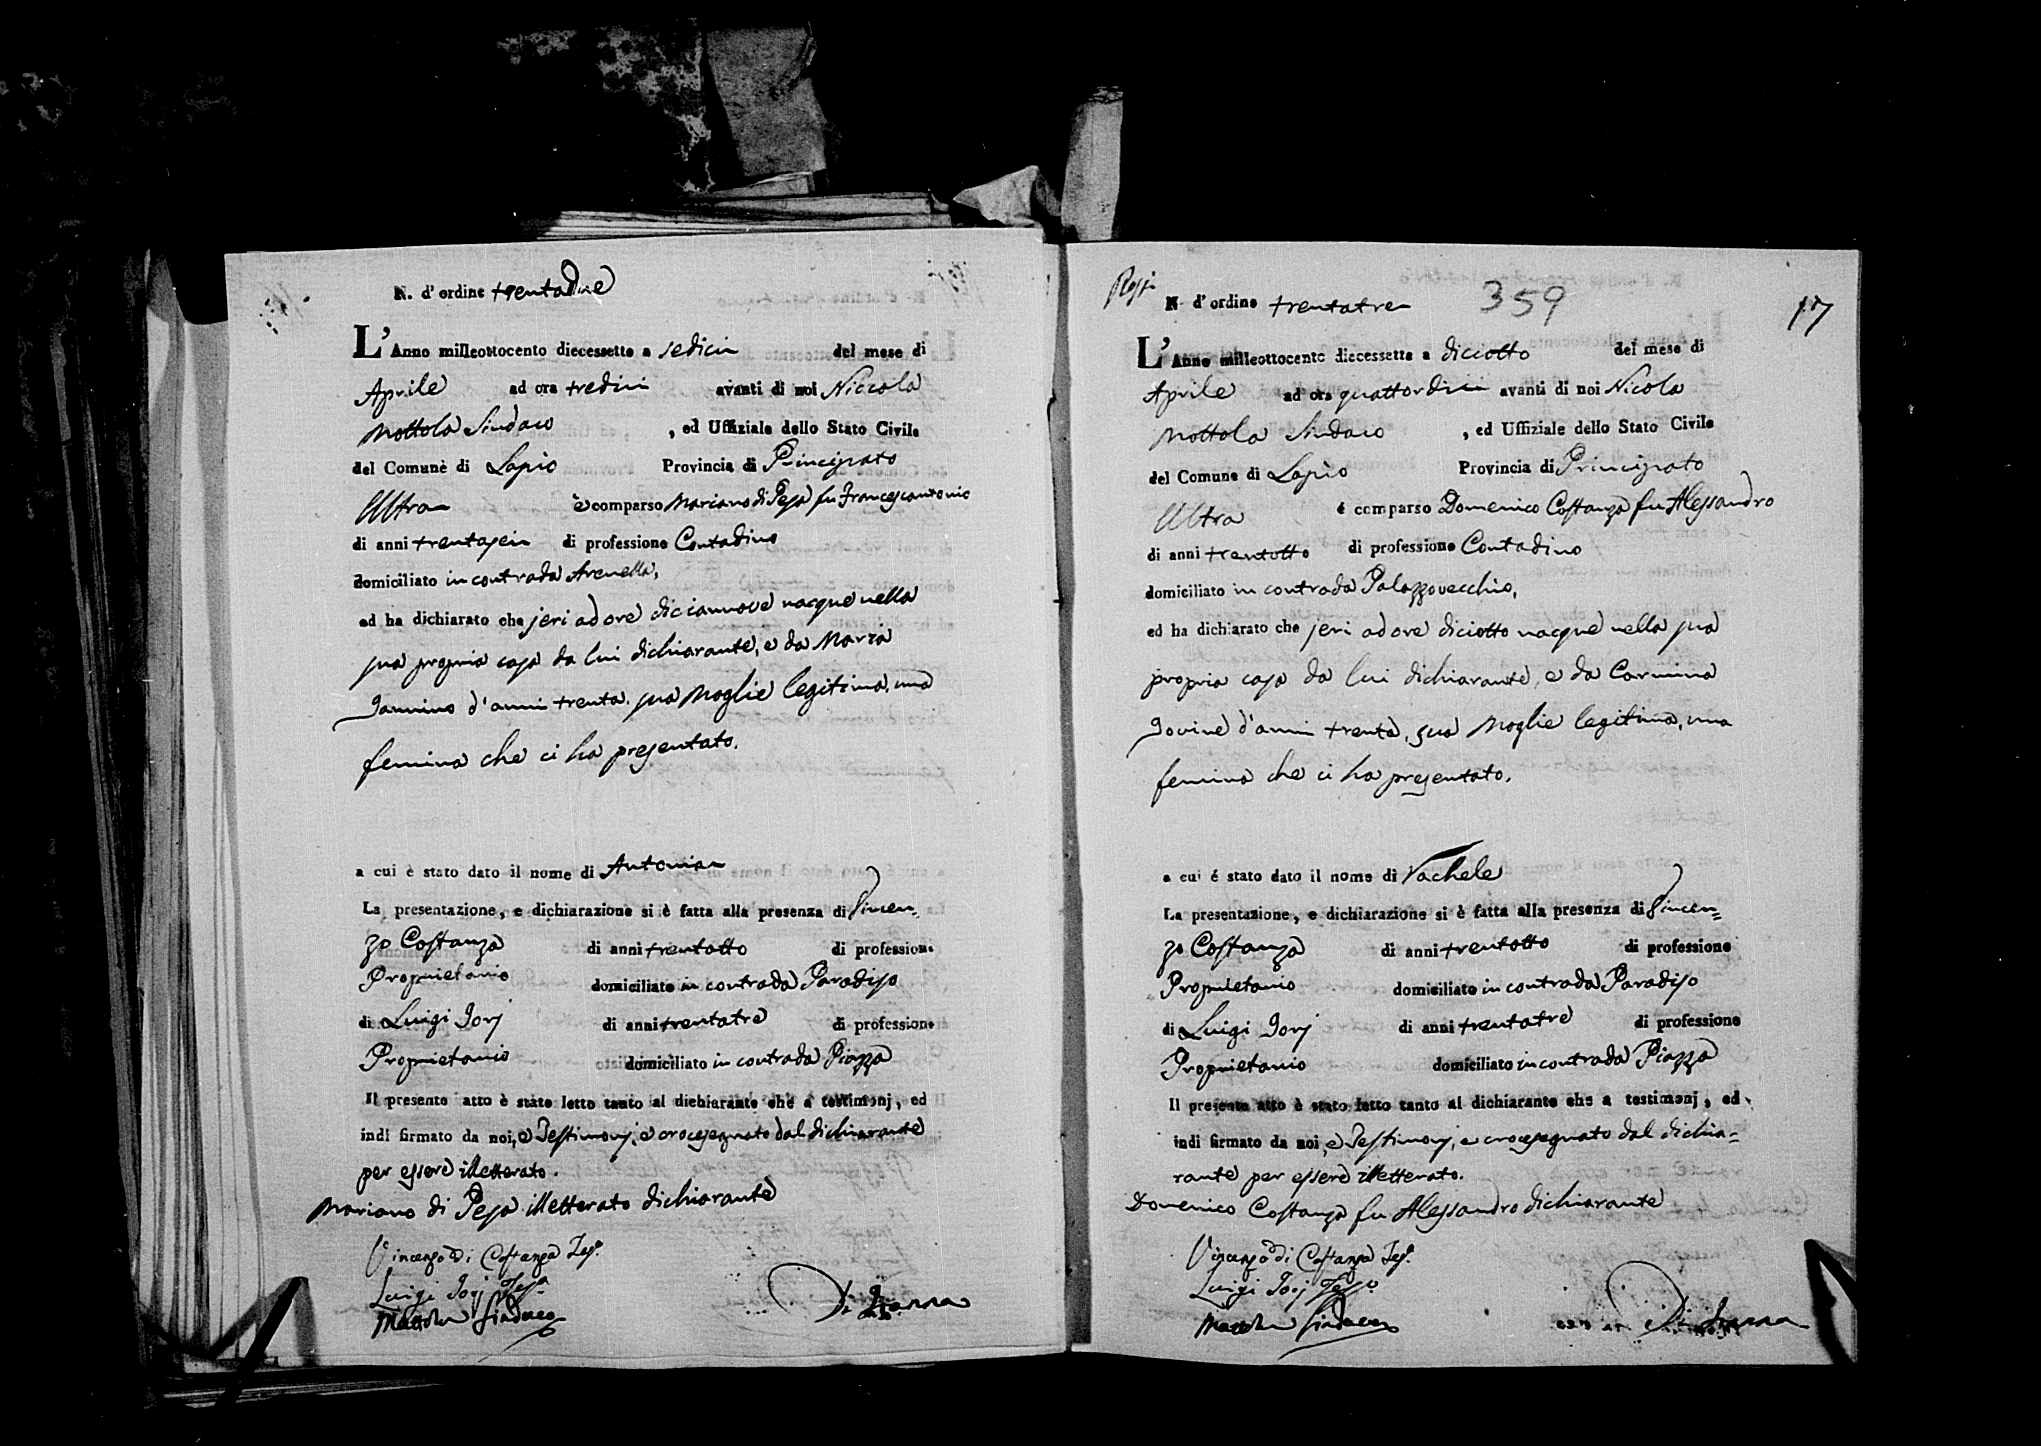 N. d' ordine trentadue
L' Anno milleottocento diecessette a sedici del mese di
Aprile ad ora tredici avanti di noi Niccola
Mottola Sindaco , ed Uffiziale dello Stato Civile
del Comune di Lapio Provincia di Principato
Ultra è comparso Mariano di Pesa fu Francescantonio
di anni trentasei di professione Contadino
domiciliato in contrada Arenella,
ed ha dichiarato che jeri ad ore diciannove nacque nella
sua propria casa da lui dichiarante, e da Maria
Iannino d'anni trenta sua Moglie legitima, una
femina che ci ha presentato.
a cui è stato dato il nome di Antonia
La presentazione, e dichiarazione si è fatta alla presenza di Vincen=
zo Costanza di anni trentotto di professione
Proprietario domiciliato in contrada Paradiso
di Luigi Iorj di anni trentatre di professione
Proprietario domiciliato in contrada Piazza
Il presente atto è stato letto tanto al dichiarante che a testimonj, ed
indi firmato da noi, e Testimonj, e crocesegnato dal dichiarante
per essere illetterato.
Mariano di Pesa illetterato dichiarante
Vincenzo di Costanza Tes.o
Luigi Iorj Tes.o
Mottola Sindaco
Regi
N. d' ordine trentatre 359 17
L' Anno milleottocento diecessette a diciotto del mese di
Aprile ad ora quattordici avanti di noi Nicola
Mottola Sindaco , ed Uffiziale dello Stato Civile
del Comune di Lapio Provincia di Principato
Ultra é comparso Domenico Costanza fu Alessandro
di anni trentotto di professione Contadino
domiciliato in contrada Palazzovecchio,
ed ha dichiarato che jeri ad ore diciotto nacque nella sua
propria casa da lui dichiarante, e da Carmina
Iovine d'anni trenta, sua Moglie legitima, una
femina che ci ha presentato.
a cui é stato dato il nome di Rachele
La presentazione, e dichiarazione si è fatta alla presenza di Vincen=
zo Costanza di anni trentotto di professione
Proprietario domiciliato in contrada Paradiso
di Luigi Iorj di anni trentatre di professione
Proprietario domiciliato in contrada Piazza
Il presente atto è stato letto tanto al dichiarante che a testimonj, ed
indi firmato da noi, e Testimonj, e crocesegnato dal dichia=
rante per essere illetterato.
Domenico Costanza fu Alessandro dichiarante
Vincenzo di Costanza Tes.o
Luigi Iorj Tes.o
Mottola Sindaco